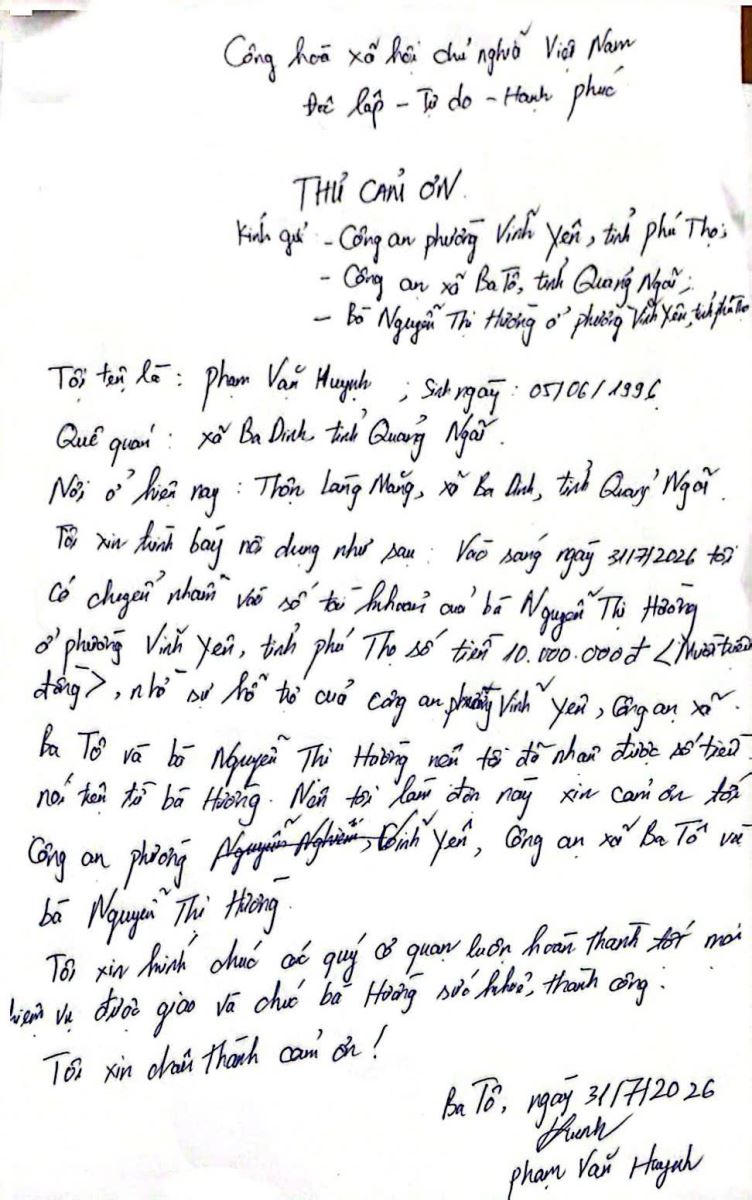 Cộng hoà xã hội chủ nghĩa Việt Nam
Độc lập - Tự do - Hạnh phúc
THƯ CẢM ƠN
Kính gửi - Công an phường Vĩnh Yên, tỉnh Phú Thọ;
- Công an xã Ba Tô, tỉnh Quảng Ngãi;
- Bà Nguyễn Thị Hường ở phường Vĩnh Yên, tỉnh Phú Thọ
Tôi tên là: Phạm Văn Huynh ; Sinh ngày: 05/06/1996
Quê quán: xã Ba Dinh, tỉnh Quảng Ngãi.
Nơi ở hiện nay: Thôn Làng Măng, xã Ba Dinh, tỉnh Quảng Ngãi.
Tôi xin trình bày nội dung như sau: Vào sáng ngày 31/7/2026 tôi
có chuyển nhầm vào số tài khoản của bà Nguyễn Thị Hường
ở phường Vĩnh Yên, tỉnh Phú Thọ số tiền 10.000.000đ <Mười triệu
đồng>, nhờ sự hỗ trợ của công an phường Vĩnh Yên, Công an xã
Ba Tô và bà Nguyễn Thị Hường nên tôi đã nhận được số tiền
nói trên từ bà Hường. Nên tôi làm đơn này xin cảm ơn tới
Công an phường Nguyễn Nghiêm, Vĩnh Yên, Công an xã Ba Tô và
bà Nguyễn Thị Hường.
Tôi xin kính chúc các quý cơ quan luôn hoàn thành tốt mọi
nhiệm vụ được giao và chúc bà Hường sức khoẻ, thành công.
Tôi xin chân thành cảm ơn!
Ba Tô, ngày 31/7/2026
Huynh
Phạm Văn Huynh